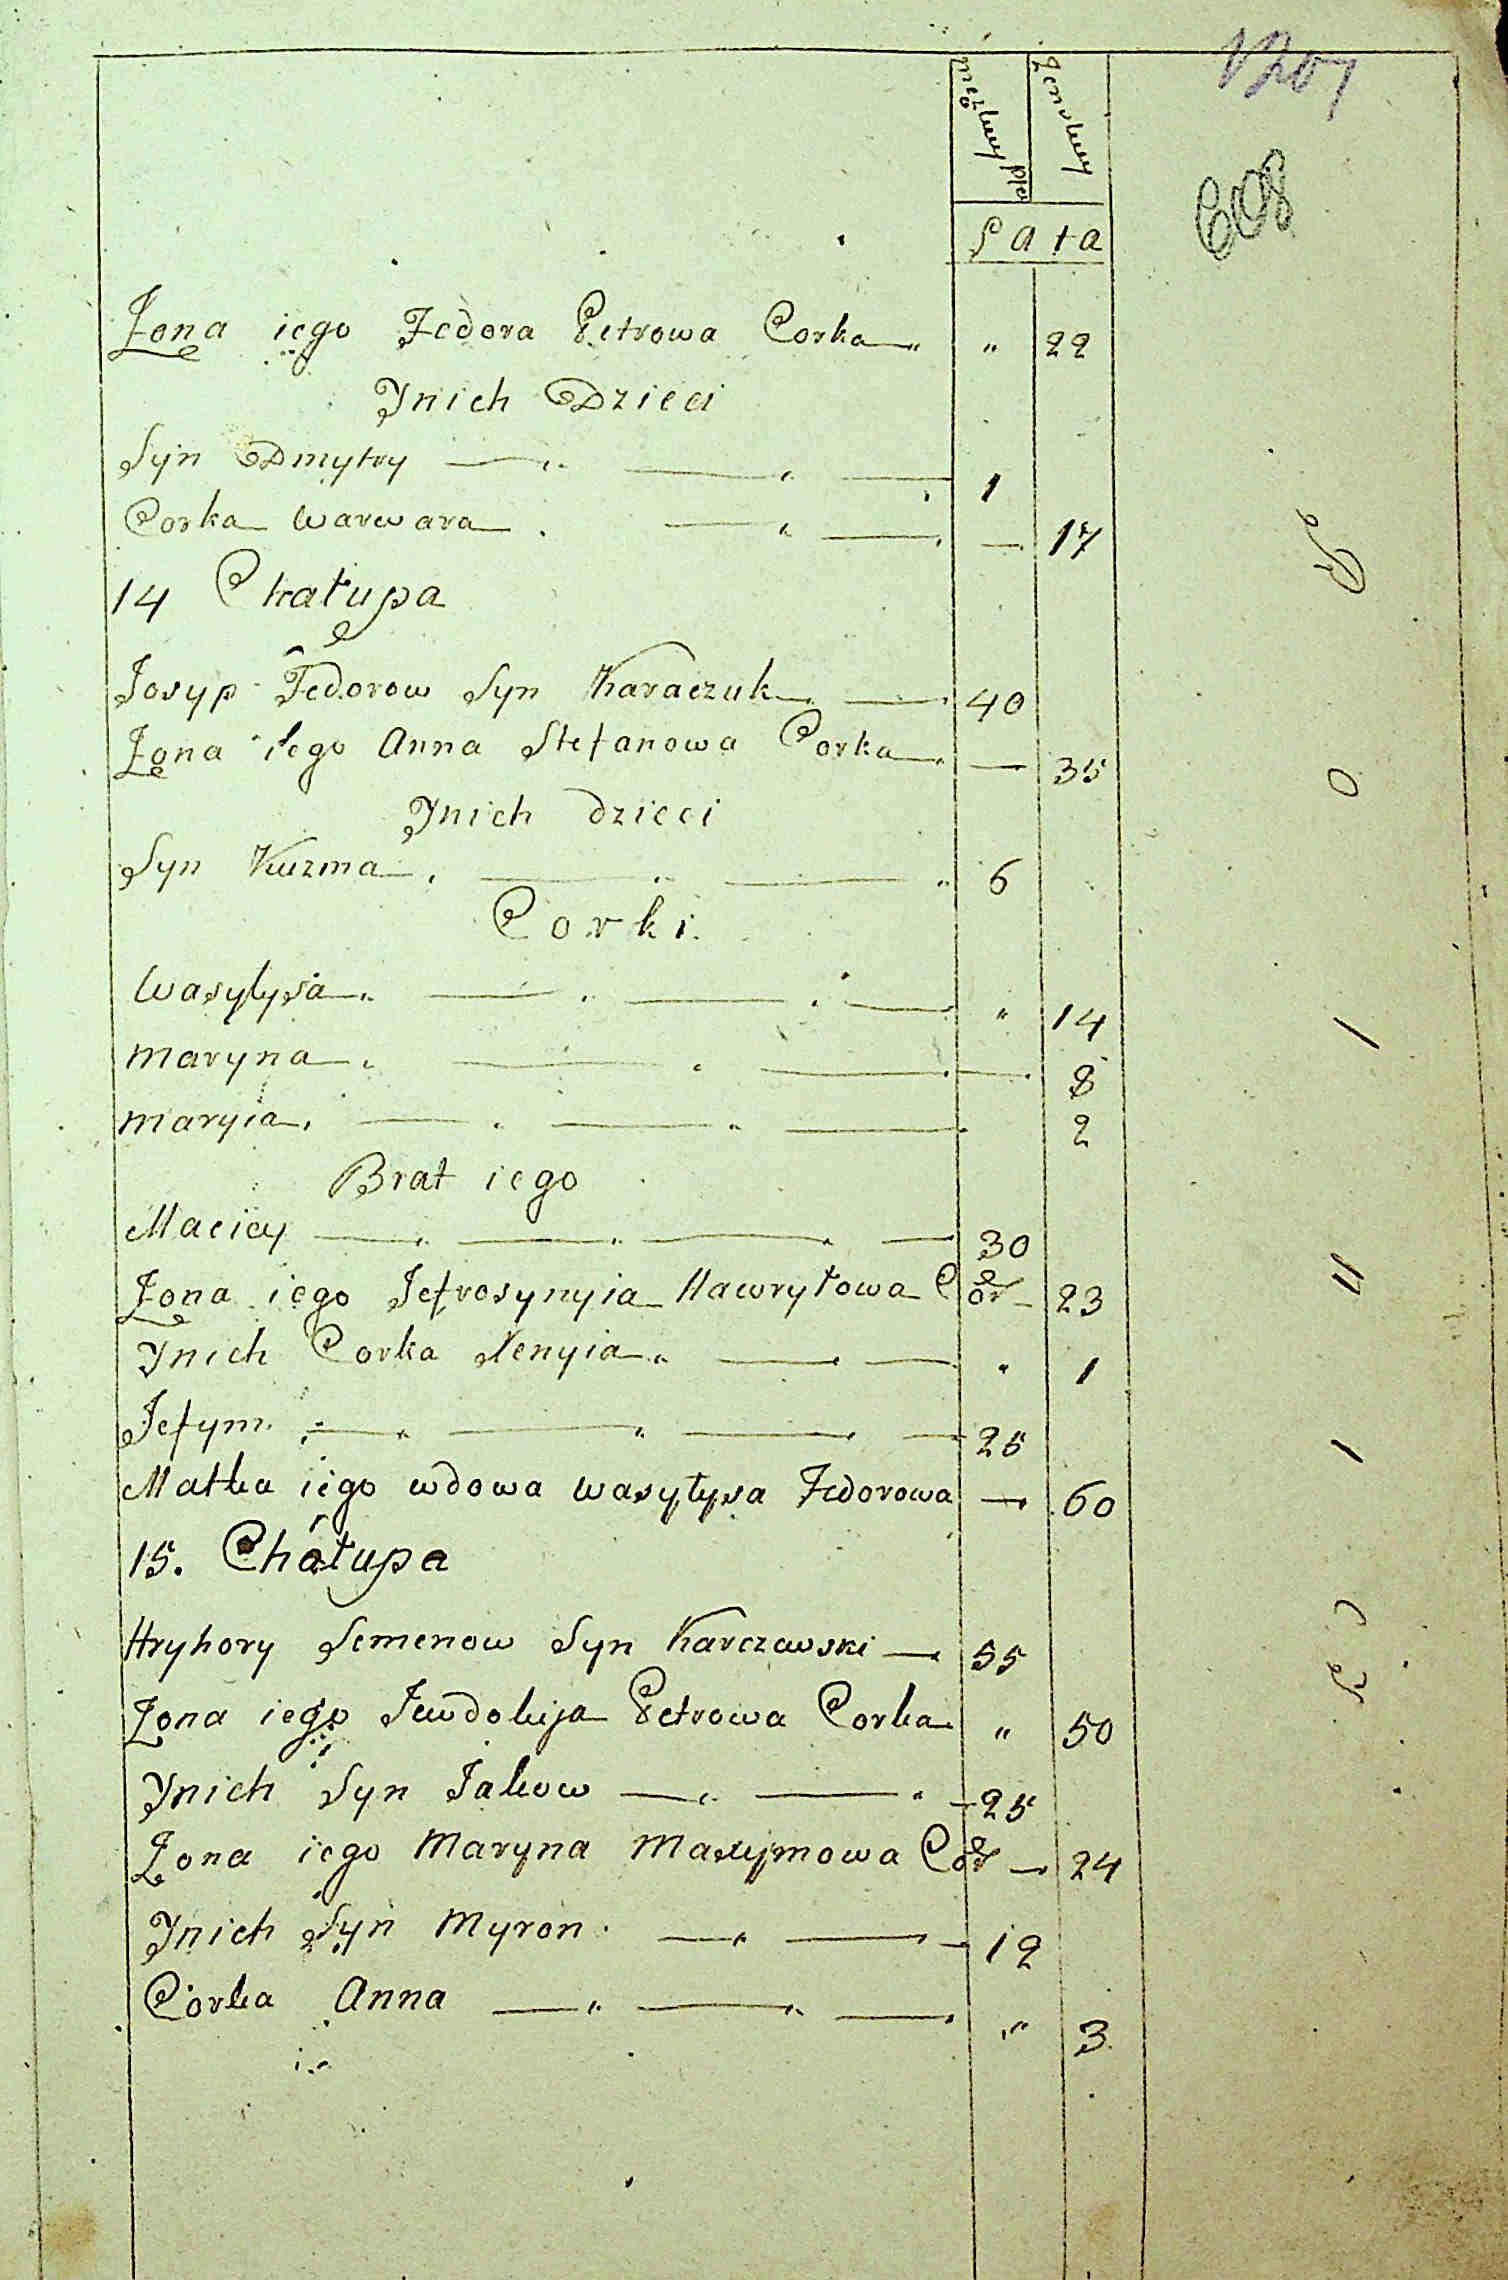 1207
608
męzkiey płci
Zenskiey
Lata
Zona iego Fedora Petrowa Corka " 22
Ynich Dzieci
Syn Dmytry 1
Corka Warwara — 17
14 Chałupa
Josyp Fedorow Syn Karaczuk — 40
Zona iego Anna Stefanowa Corka — 35
Ynich dzieci
Syn Kuzma 6
Corki
Wasylysa " 14
Maryna — 8
Maryia 2
Brat iego
Maciey 30
Zona iego Jefrosynyia Hawryłowa Cor — 23
Ynich Corka Xenyia " 1
Jefym 25
Matka iego wdowa Wasyłysa Fedorowa — 60
15. Chałupa
Hryhory Semenow Syn Karczewski — 55
Zona iego Jewdokija Petrowa Corka " 50
Ynich Syn Jakow — 25
Zona iego Maryna Maxymowa Cor — 24
Ynich Syn Myron — 12
Corka Anna " 3